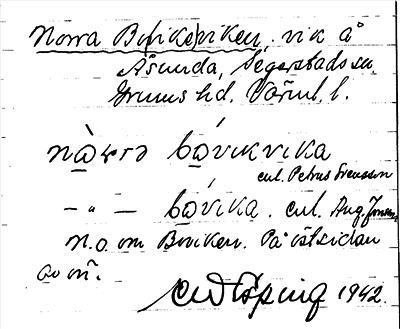 Norra Bovikeviken, vik å
Åsunda, Segerstads sn,
Grums hd. Värml. l.
nò̱rrə bo̱vikvika
enl. Petrus Svensson
— „ — bo̱vika. enl. Aug. Jonsson
N.o om Boviken. På östsidan
av ön.
1942.